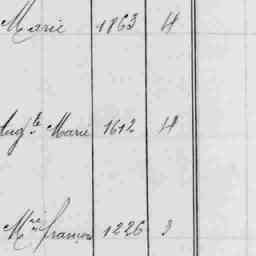 Marie 1863 4
Aug.te Marie 1612 4
Mre françoise 1226 3